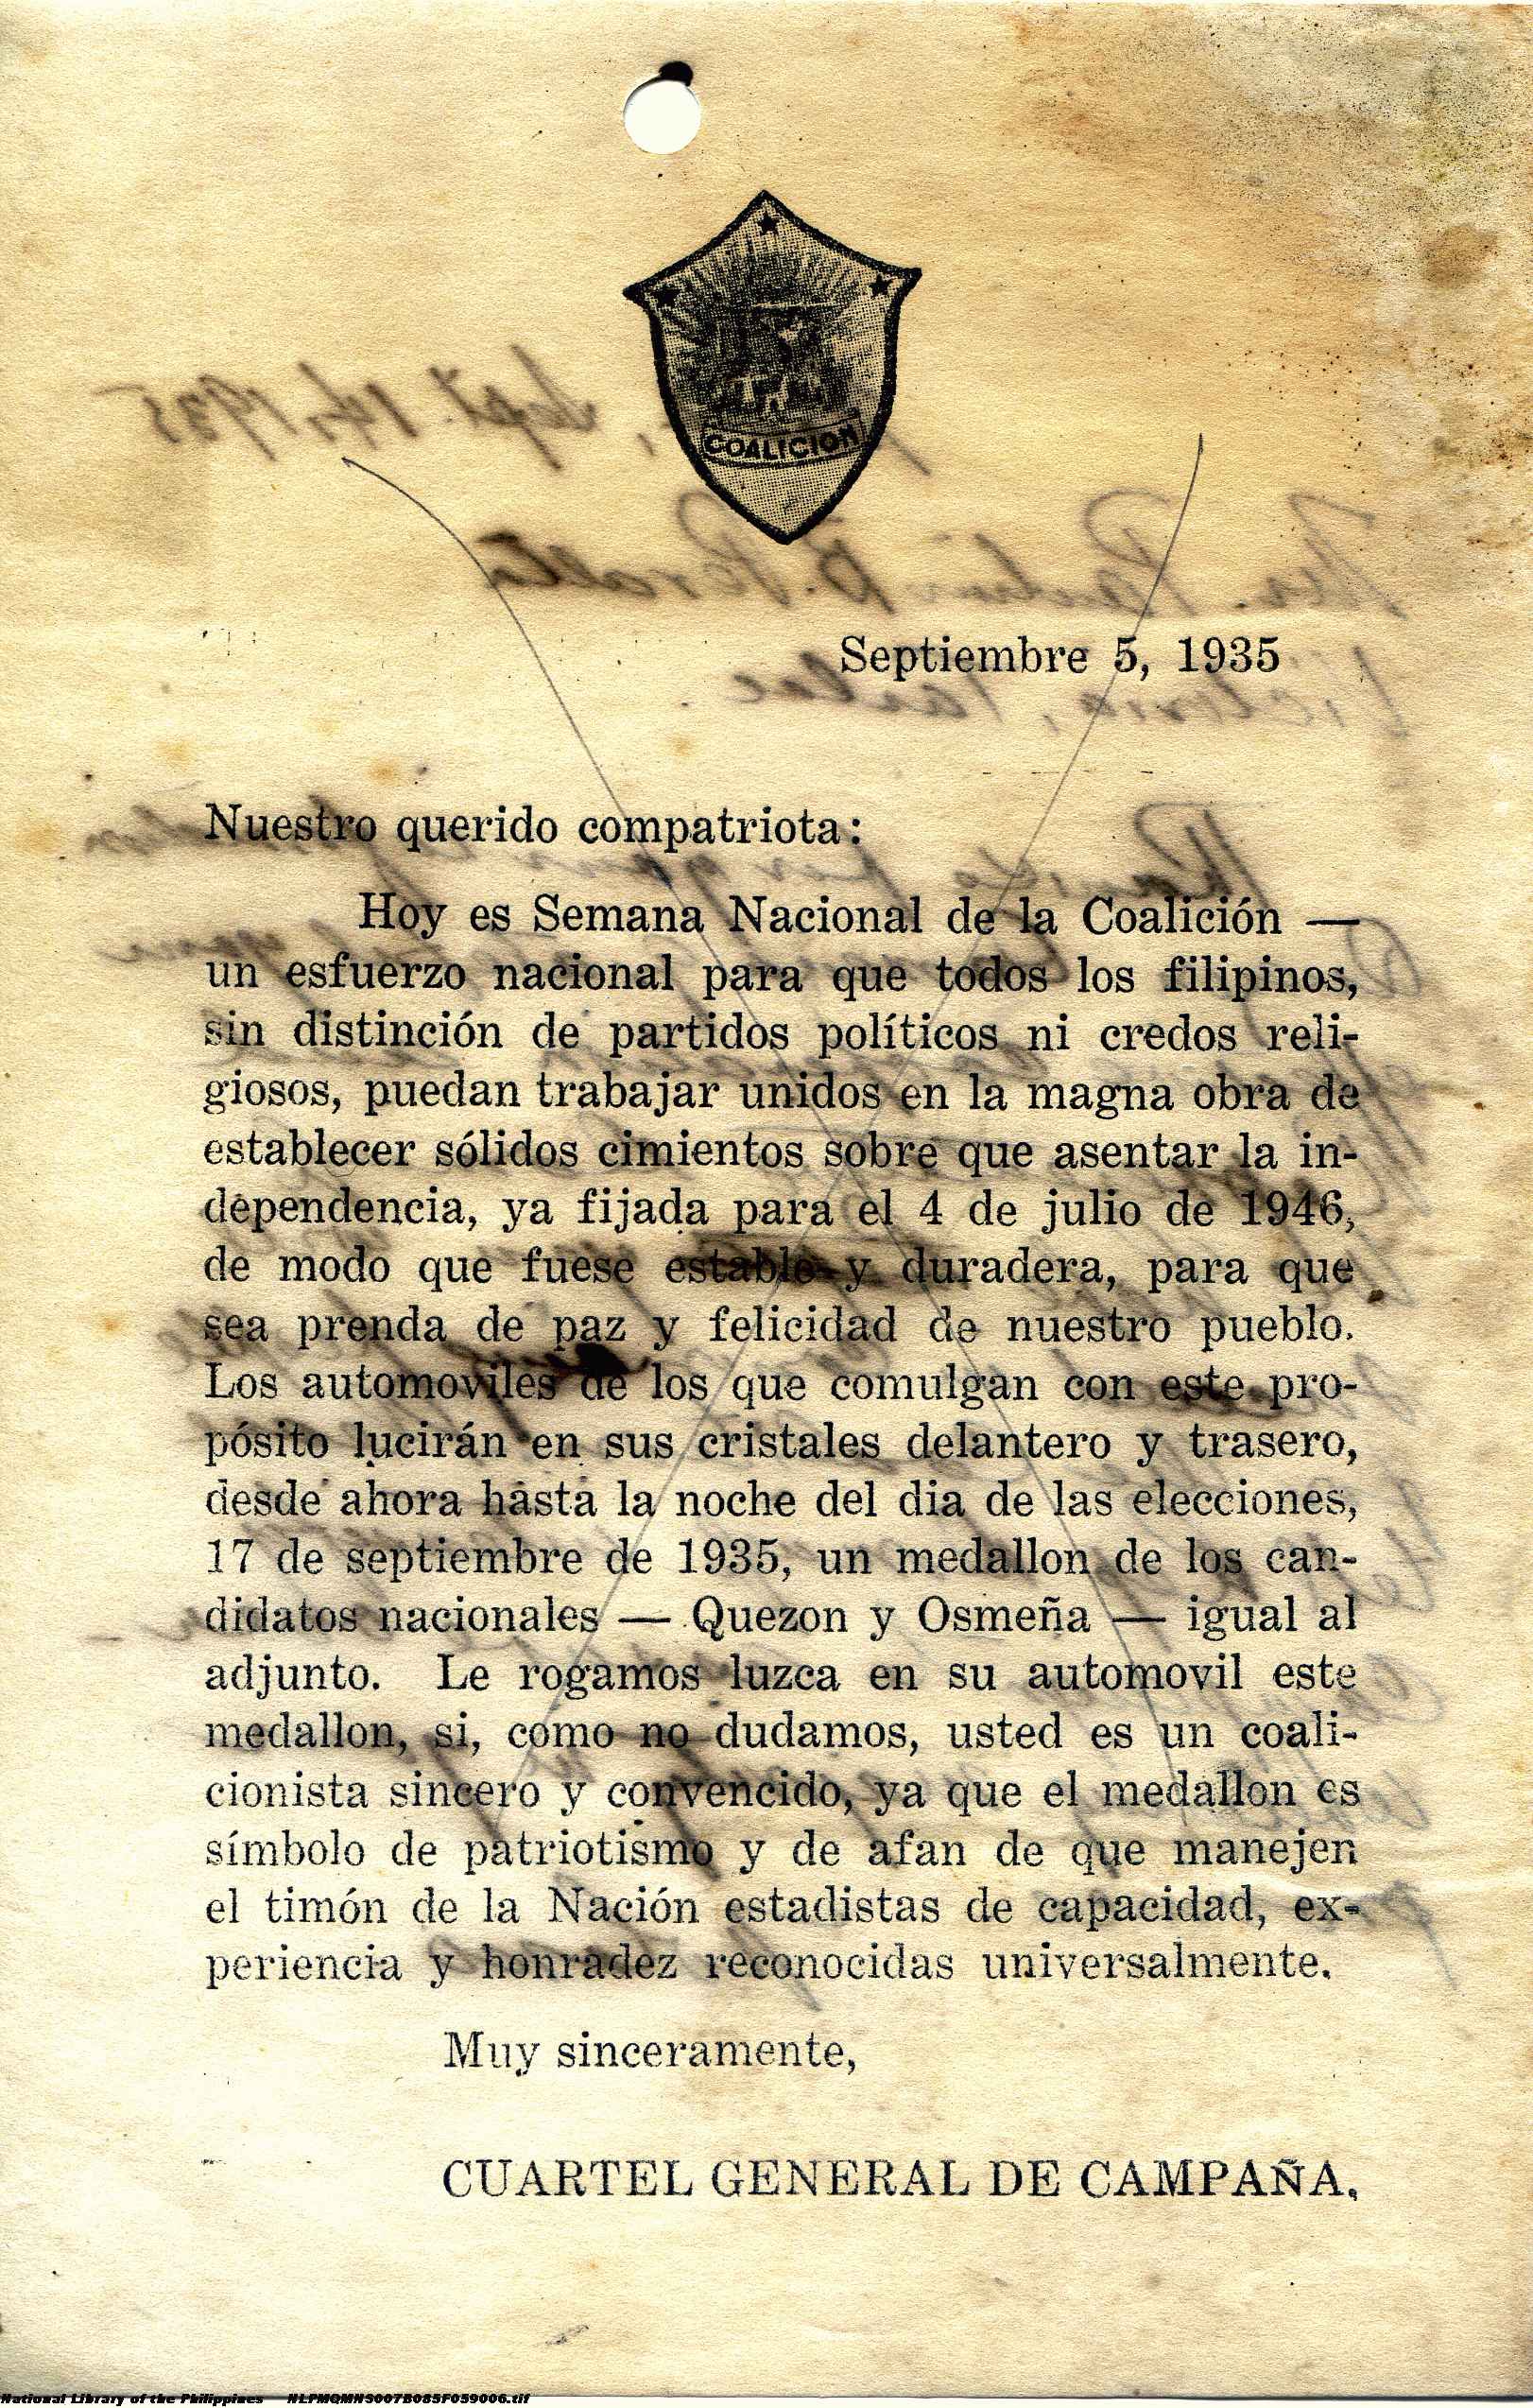 COALICION
Septiembre 5, 1935
Nuestro querido compatriota:
Hoy es Semana Nacional de la Coalición —
un esfuerzo nacional para que todos los filipinos,
sin distinción de partidos políticos ni credos reli-
giosos, puedan trabajar unidos en la magna obra de
establecer sólidos cimientos sobre que asentar la in-
dependencia, ya fijada para el 4 de julio de 1946,
de modo que fuese estable y duradera, para que
sea prenda de paz y felicidad de nuestro pueblo.
Los automoviles de los que comulgan con este pro-
pósito lucirán en sus cristales delantero y trasero,
desde ahora hasta la noche del dia de las elecciones,
17 de septiembre de 1935, un medallon de los can-
didatos nacionales — Quezon y Osmeña — igual al
adjunto. Le rogamos luzca en su automovil este
medallon, si, como no dudamos, usted es un coali-
cionista sincero y convencido, ya que el medallon es
símbolo de patriotismo y de afan de que manejen
el timón de la Nación estadistas de capacidad, ex-
periencia y honradez reconocidas universalmente.
Muy sinceramente,
CUARTEL GENERAL DE CAMPAÑA.
National Library of the Philippines NLPMQMNS007B085F059006.tif